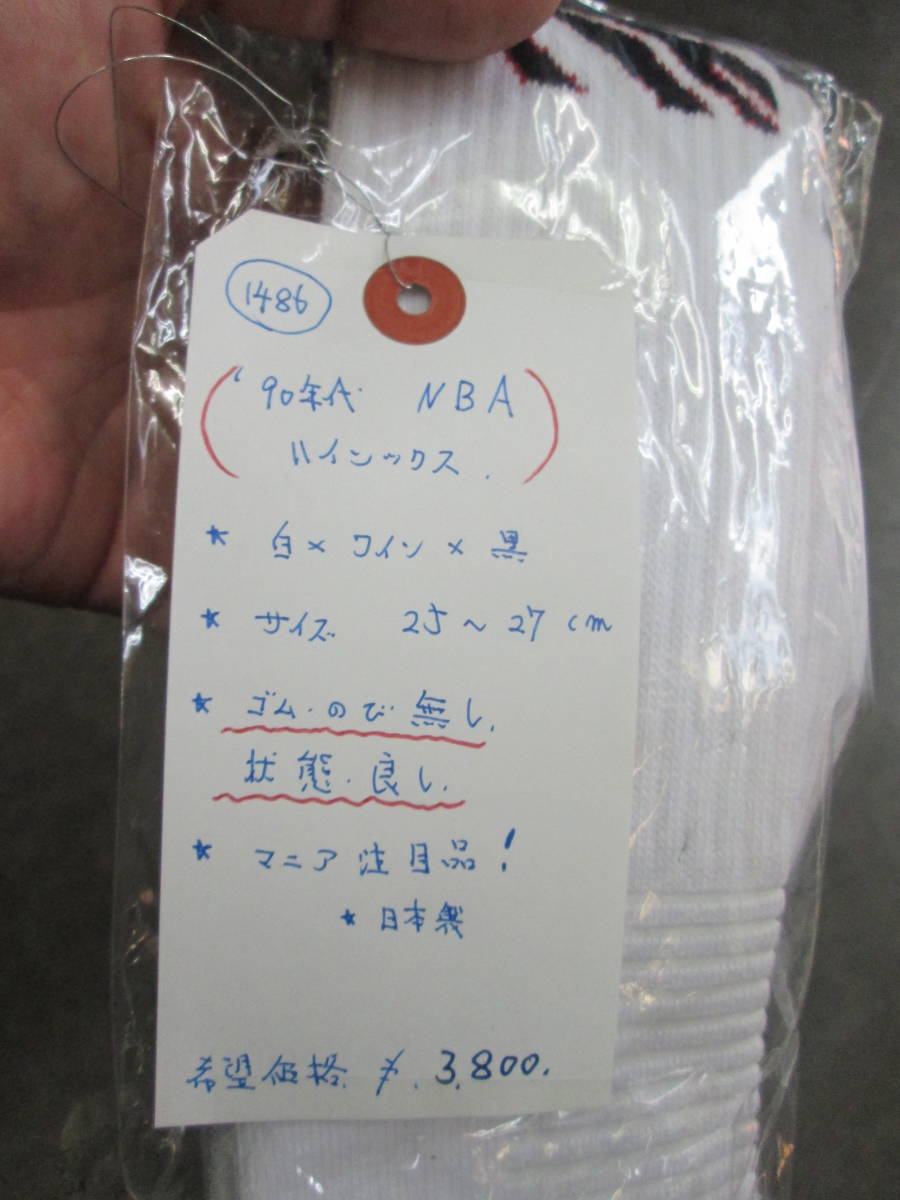 1486
'90年代 NBA
ハインックス.
★ 白×ワイン×黒
★ サイズ 25～27cm
★ ゴム・のび無し.
状態・良し.
★ マニア注目品!
★日本製
希望価格 ¥.3,800.